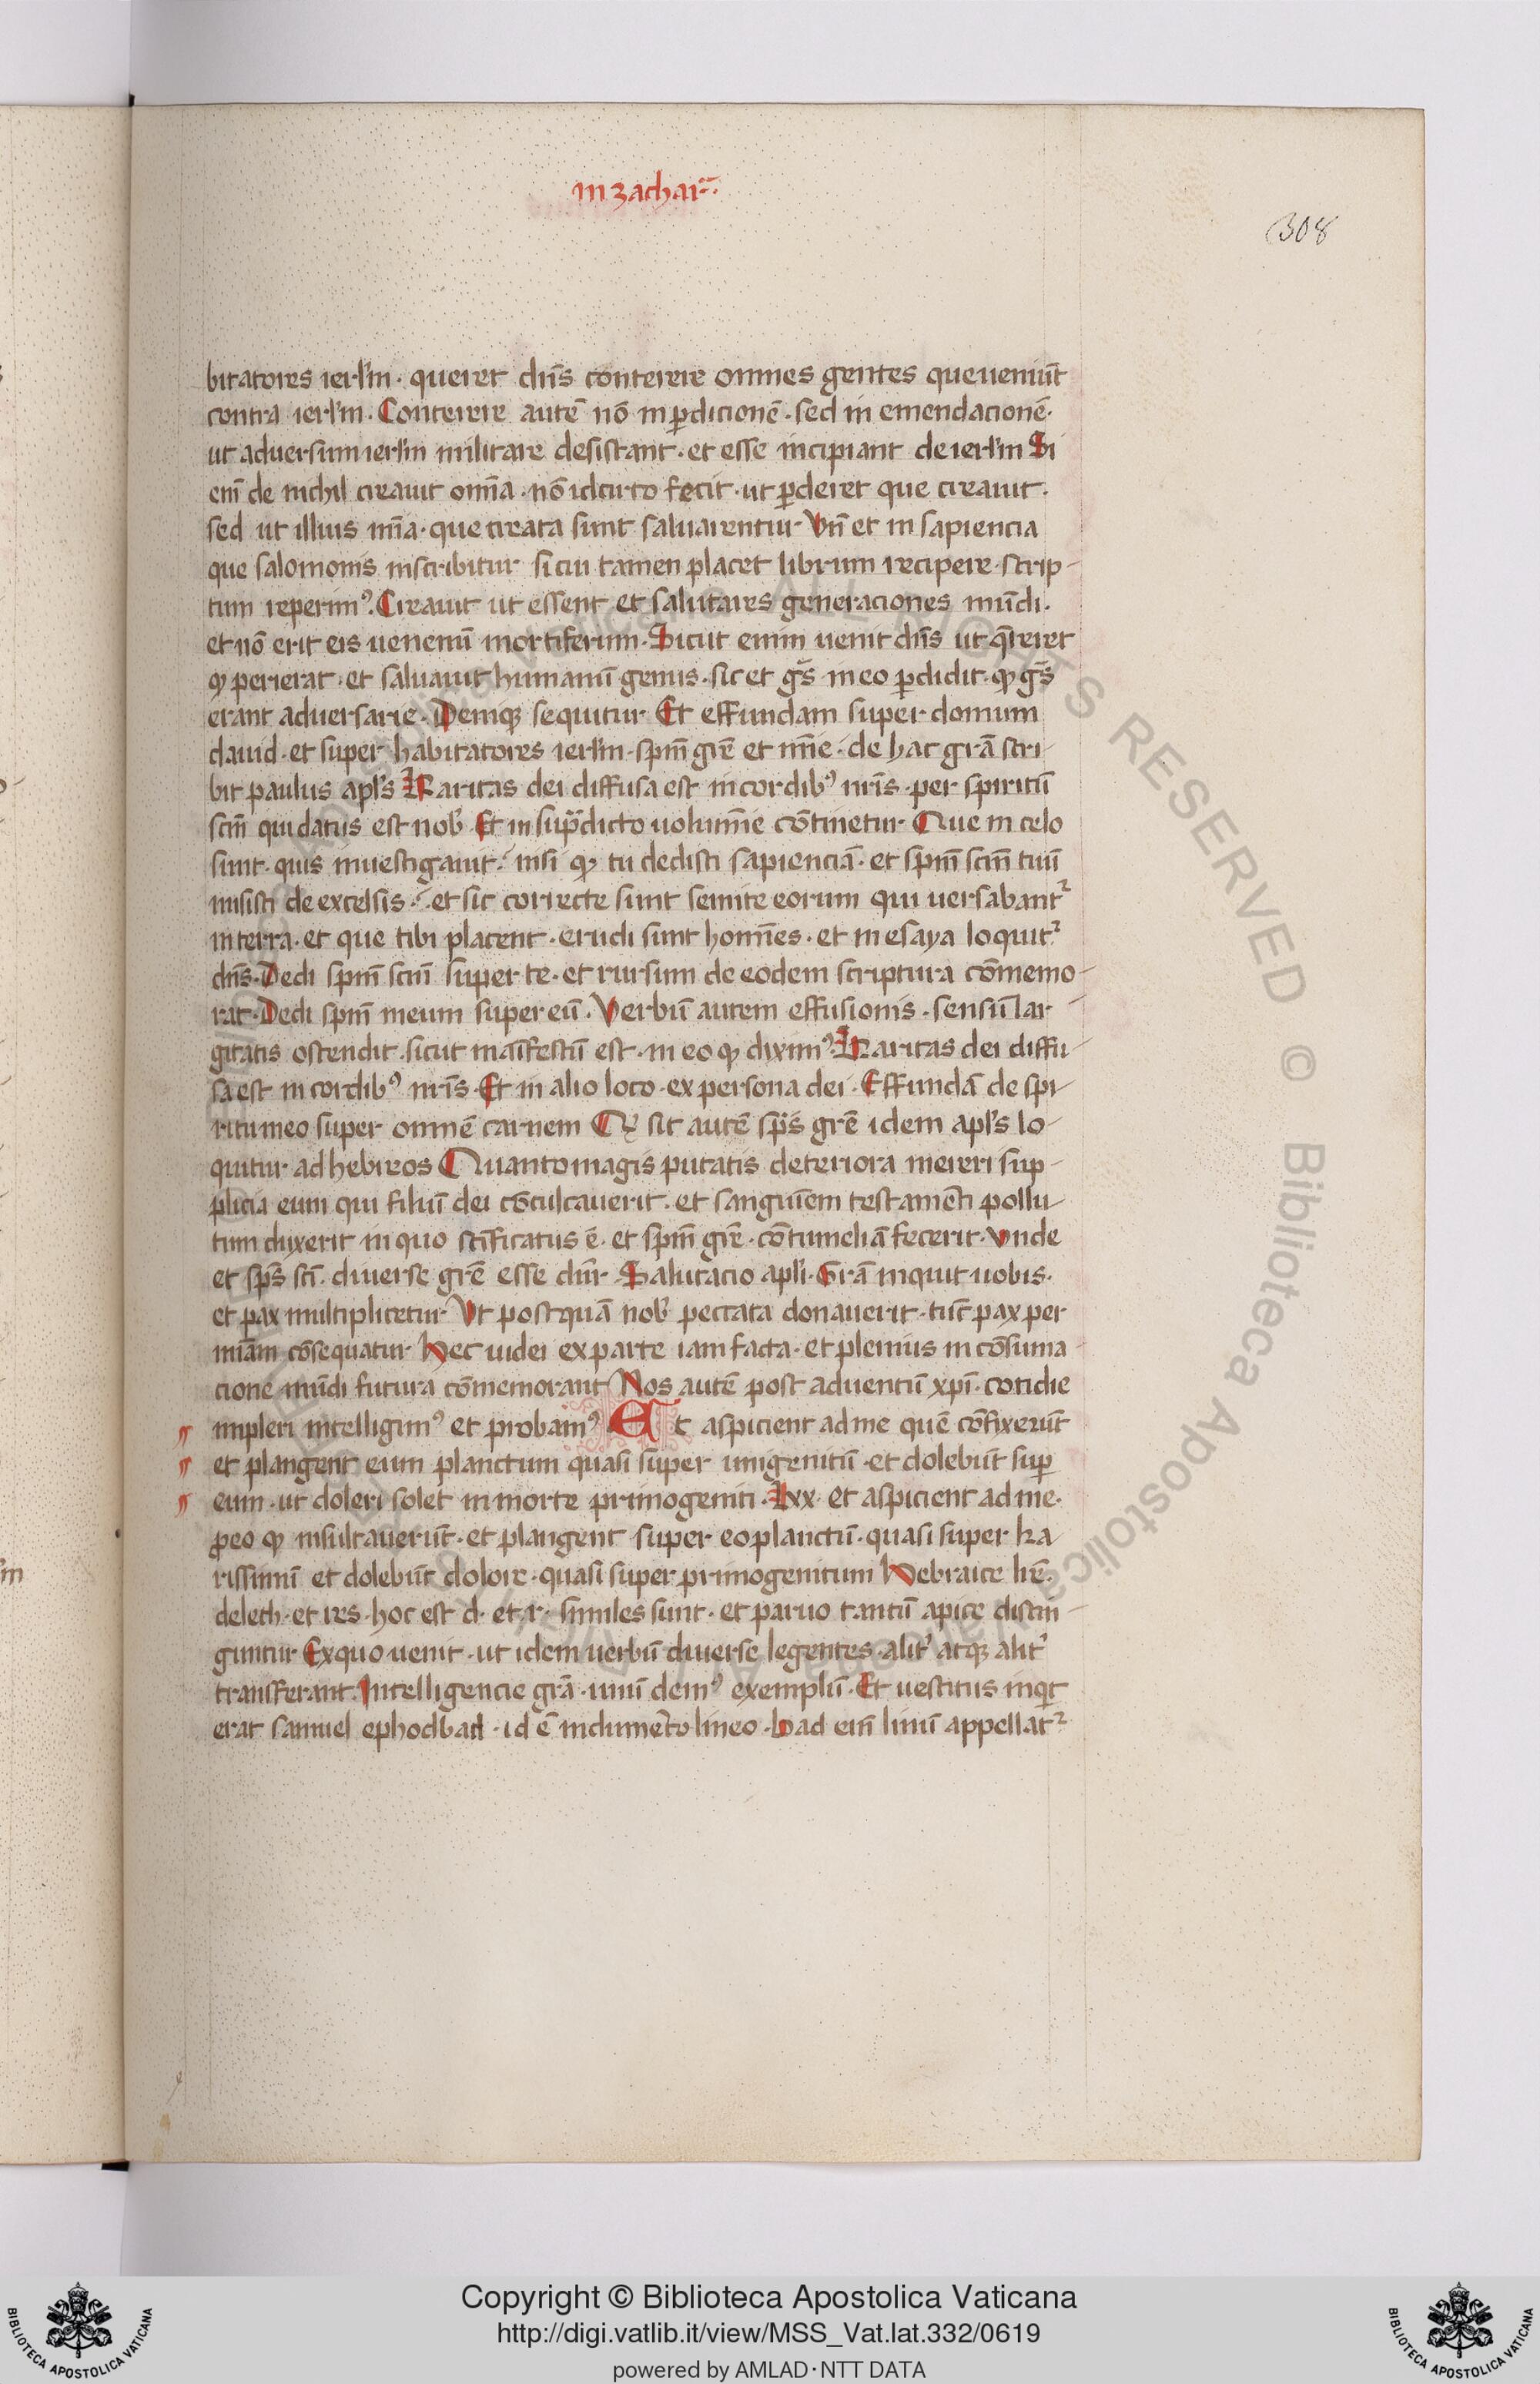 in zachar̄.
308
bitatores ierl'm · queret dn̄s conterere omnes gentes que ueniūt
contra ierl'm · Conterere autē nō in ꝑdicionē · sed in emendacionē ·
ut aduersum ierl'm militare desistant · et esse incipiant de ierl'm Si
eni̅ de nichil creauit om̄ia · nō idcirco fecit · ut ꝑderet que creauit ·
sed ut illius mīa · que creata sunt saluarentur · Vn̄ et in sapiencia
que salomonis inscribitur si cui tamen placet librum recipere · scrip-
tum reperimꝰ. Creauit ut essent · et salutares generaciones mūdi ·
et nō erit eis uenenū mortiferum · Sicut enim uenit dn̄s ut q̄reret
ꝙ perierat · et saluauit humanū genus · sic et gn̄s in eo ꝑdidit · ꝙ gn̄s
erant aduersarie · Deniqꝫ sequitur Et effundam super domum
dauid · et super habitatores ierl'm · spm̄ grē et mīe · de hac grā scri-
bit paulus apl's Karitas dei diffusa est in cordibꝰ nr̄is · per spiritū
scm̄ qui datus est nob' Et in sup̄dicto uolumīe cōtinetur Que in celo
sunt · quis inuestigauit · nisi ꝙ tu dedisti sapienciā · et spm̄ scm̄ tuū
misisti de excelsis · et sic correcte sunt semite eorum qui uersabant᷑
in terra · et que tibi placent · erudi sunt homīes · et in esaya loquit᷑
dn̄s · Dedi spm̄ scm̄ super te · et rursum de eodem scriptura cōmemo-
rat · Dedi spm̄ meum super eū · Verbū autem effusionis · sensū lar-
gitatis ostendit · sicut maīfestū est · in eo ꝙ diximꝰ. Karitas dei diffu-
sa est in cordibꝰ nr̄is · Et in alio loco · ex persona dei · Effundā de spi-
ritu meo super omnē carnem Qꝫ sit autē sp̄s grē idem apl's lo-
quitur ad hebreos Quanto magis putatis deteriora mereri sup-
plicia eum qui filiū dei cōculcauerit · et sanguīem testamēti pollu-
tum duxerit in quo scīficatus ē · et spm̄ grē · cōtumeliā fecerit · Vnde
et sp̄s sci̅ · diuerse grē esse dnr̄ · Salutacio apl'i · Grā inquit uobis ·
et pax multiplicetur Vt postquā nob' peccata donauerit · tūc pax per
miam̄ cōsequatur Hec iudei ex parte iam facta · et plenius in cōsuma-
cione mūdi futura cōmemorant Nos autē post aduentū xp̄i · cotidie
impleri intelligimꝰ et probamꝰ Et aspicient ad me quē cōfixerūt
et plangent eum planctum quasi super unigenitū · et dolebūt suꝑ
eum · ut doleri solet in morte primogeniti · Lxx · et aspicient ad me ·
ꝓ eo ꝙ insultauerūt · et plangent super eo planctū · quasi super ka
rissimū et dolebūt dolore · quasi super primogenitum Hebraice lrē ·
deleth · et res · hoc est d · et · r · similes sunt · et paruo tantū apice distin-
guntur Ex quo uenit · ut idem uerbū diuerse legentes · alit' atqꝫ alit'
transferant. Intelligencie grā · unū demꝰ exemplū · Et uestitus inqt
erat samuel ephodbad · id ē indumēto lineo · bad eni̅ linū appellat᷑
Copyright © Biblioteca Apostolica Vaticana
http://digi.vatlib.it/view/MSS_Vat.lat.332/0619
powered by AMLAD·NTT DATA